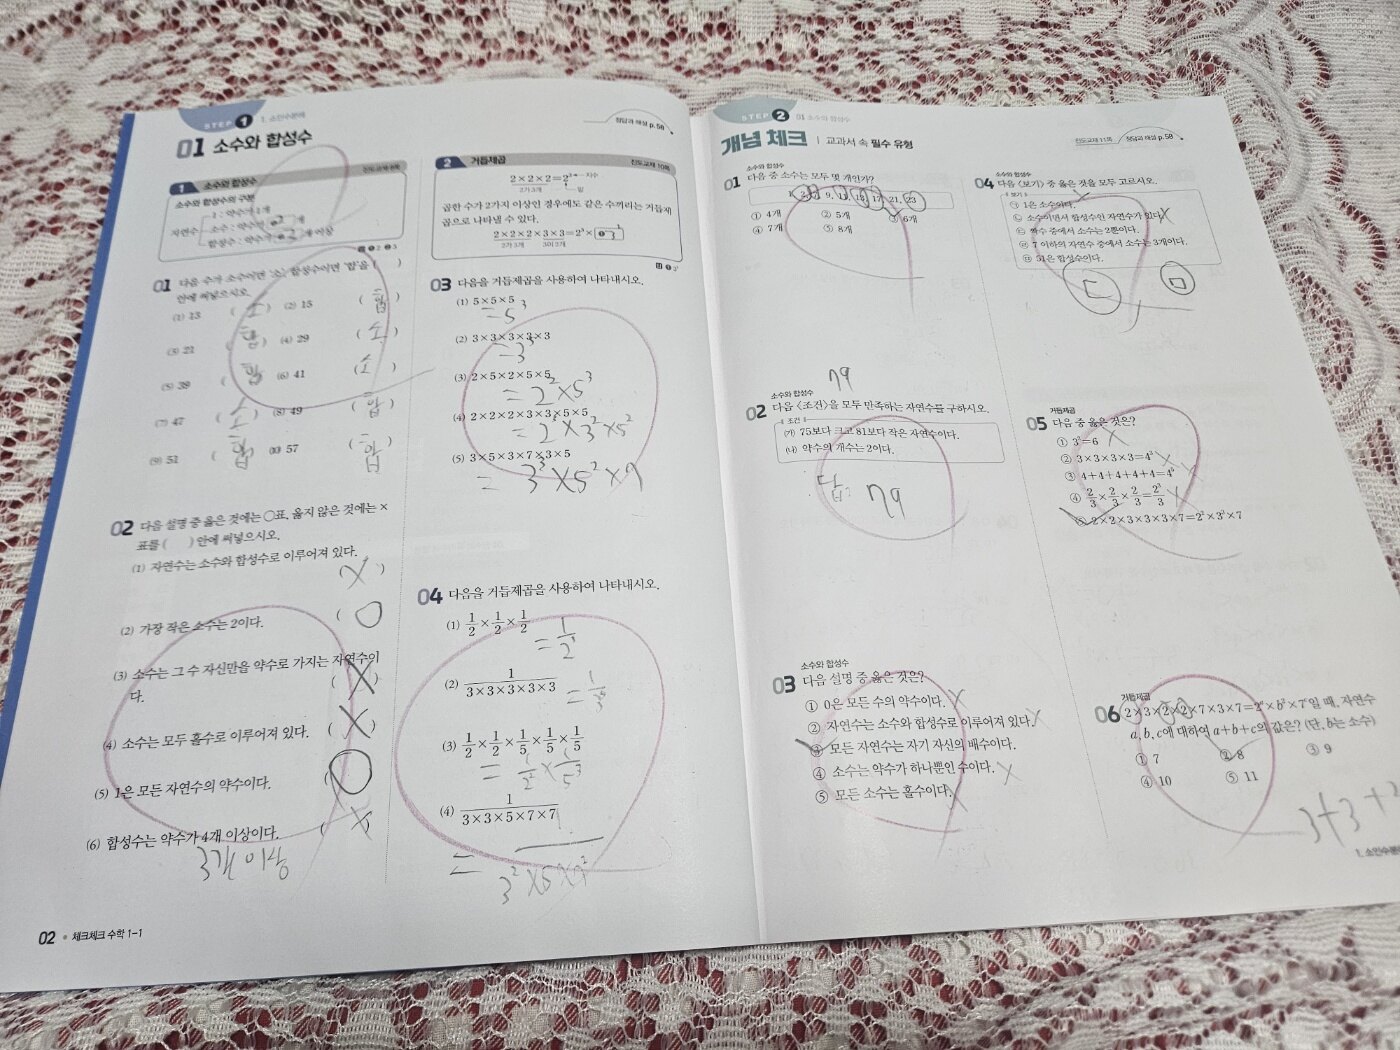 STEP 1 1. 소인수분해
01 소수와 합성수
정답과 해설 p.58
1 소수와 합성수
소수와 합성수의 구분
자연수
1 : 약수가 1개
소수 : 약수가 ❶2개
합성수 : 약수가 ❷3개 이상
답 ❶ 2 ❷ 3
01 다음 수가 소수이면 '소', 합성수이면 '합'을 ( )
안에 써넣으시오.
(1) 13 ( 소 ) (2) 15 ( 합 )
(3) 21 ( 합 ) (4) 29 ( 소 )
(5) 39 ( 합 ) (6) 41 ( 소 )
(7) 47 ( 소 ) (8) 49 ( 합 )
(9) 51 ( 합 ) (10) 57 ( 합 )
02 다음 설명 중 옳은 것에는 ○표, 옳지 않은 것에는 ×
표를 ( ) 안에 써넣으시오.
(1) 자연수는 소수와 합성수로 이루어져 있다.
X )
(2) 가장 작은 소수는 2이다. ( O
(3) 소수는 그 수 자신만을 약수로 가지는 자연수이
다. ( X )
(4) 소수는 모두 홀수로 이루어져 있다. ( X )
(5) 1은 모든 자연수의 약수이다. ( O )
(6) 합성수는 약수가 4개 이상이다. ( X )
3개 이상
02 • 체크체크 수학 1-1
2 거듭제곱 진도교재 10쪽
2×2×2=2³ 지수
2가 3개 밑
곱한 수가 2가지 이상인 경우에도 같은 수끼리는 거듭제
곱으로 나타낼 수 있다.
2×2×2×3×3=2³×❶3²
2가 3개 3이 2개
답 ❶ 3²
03 다음을 거듭제곱을 사용하여 나타내시오.
(1) 5×5×5
=5³
(2) 3×3×3×3×3
(3) 2×5×2×5×5
= 2²×5³
(4) 2×2×2×3×3×5×5
= 2³×3²×5²
(5) 3×5×3×7×3×5
= 3³×5²×7
04 다음을 거듭제곱을 사용하여 나타내시오.
(1) 1/2×1/2×1/2
= 1/2³
(2) 1/(3×3×3×3×3)
(3) 1/2×1/2×1/5×1/5×1/5
= 1/2²×1/5³
(4) 1/(3×3×5×7×7)
= 1/(3²×5×7²)
STEP 2 01 소수와 합성수
개념 체크 | 교과서 속 필수 유형
진도교재 11쪽 정답과 해설 p.58
소수와 합성수
01 다음 중 소수는 모두 몇 개인가?
17, 21, 23
① 4개 ② 5개 ③ 6개
④ 7개 ⑤ 8개
79
소수와 합성수
02 다음 〈조건〉을 모두 만족하는 자연수를 구하시오.
조건
(가) 75보다 크고 81보다 작은 자연수이다.
(나) 약수의 개수는 2이다.
답: 79
소수와 합성수
03 다음 설명 중 옳은 것은?
① 0은 모든 수의 약수이다. X
② 자연수는 소수와 합성수로 이루어져 있다. X
③ 모든 자연수는 자기 자신의 배수이다.
④ 소수는 약수가 하나뿐인 수이다. X
⑤ 모든 소수는 홀수이다. X
소수와 합성수
04 다음 〈보기〉 중 옳은 것을 모두 고르시오.
보기
㉠ 1은 소수이다.
㉡ 소수이면서 합성수인 자연수가 있다. X
㉢ 짝수 중에서 소수는 2뿐이다.
㉣ 7 이하의 자연수 중에서 소수는 3개이다.
㉤ 51은 합성수이다.
ㄷ ㅁ
거듭제곱
05 다음 중 옳은 것은?
① 3²=6 X
② 3×3×3×3=4³ X
③ 4+4+4+4+4=4⁵ X
④ 2/3×2/3×2/3=2³/3 X
⑤ 2×2×3×3×3×7=2²×3³×7
거듭제곱
06 2×3×2×2×7×3×7=2ᵃ×b²×7ᶜ일 때, 자연수
a, b, c에 대하여 a+b+c의 값은? (단, b는 소수)
① 7 ② 8 ③ 9
④ 10 ⑤ 11
3+3+2